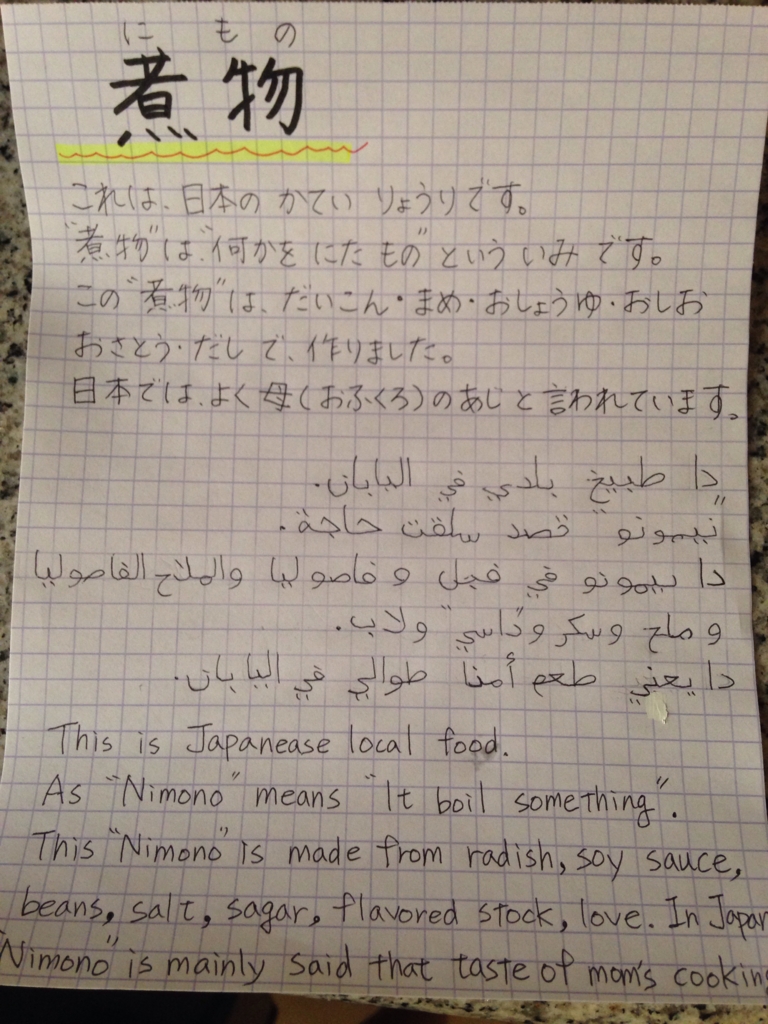 にもの
煮物
これは、日本の かてい りょうりです。
"煮物"は"何かを にた もの" という いみ です。
この"煮物"は、だいこん・まめ・おしょうゆ・おしお
おさとう・だし で、作りました。
日本では、よく 母(おふくろ)のあじ と 言われています。
دا طبيخ بلدي في اليابان.
"نيمونو" تصد سلقت حاجة.
دا نيمونو في فجل و فاصوليا والملاح الفاصوليا
و ملح وسكر و"داسي" ولاب.
دا يعني طعم أمنا طوالي في اليابان.
This is Japanease local food.
As "Nimono" means "It boil something".
This "Nimono" is made from radish, soy sauce,
beans, salt, sagar, flavored stock, love. In Japan
"Nimono" is mainly said that taste of mom's cooking